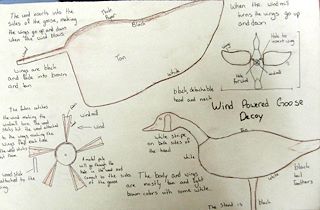 The wind inserts into the
sides of the goose, making
the wings go up and down
when the wind blows
Black
Tan
white
Wings are black
and fade into brown
and tan
black detachable
head and neck
When the windmill
turns the wings go up
and down
Hole to
insert wing
windmill
Hole
for
Wind Powered Goose
Decoy
Tan
white stripe
on both sides
of the head
white
white
black
tail
feathers
black
The body and wings
are mostly tan and light
brown colors with some white.
The stand is black
The fabric catches
the wind making the
windmill turn. The wood
sticks hit the wood attached
to the wings making the
wings flap each time
windmill
wind
A metal pole
will go through the
hole in the wood and
connect to the sides
of the goose
wood stick
attached to the
wing